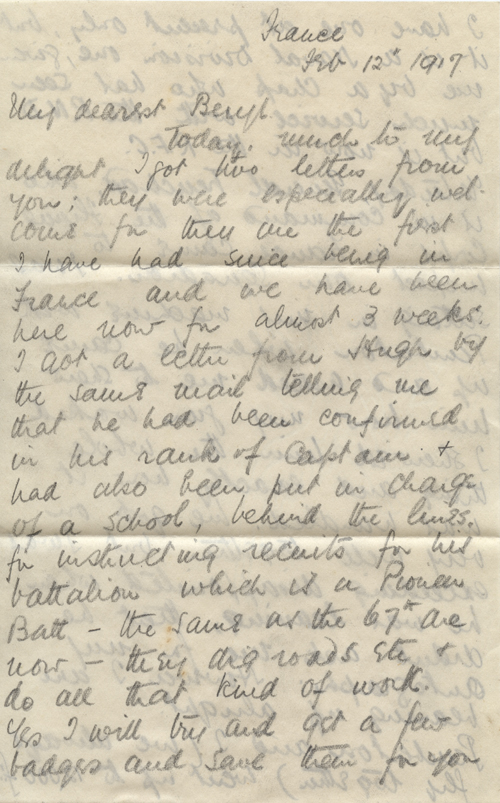 France
Feb 12th 1917
My dearest Beryl
Today, much to my
delight I got two letters from
you; they were especially wel-
come for they are the first
I have had since being in
France and we have been
here now for almost 3 weeks.
I got a letter from Hugh by
the same mail telling me
that he had been confirmed
in his rank of Captain +
had also been put in charge
of a school, behind the lines,
for instructing recruits for his
battalion which is a Pioneer
Batt - the same as the 67th are
now - they dig roads etc +
do all that kind of work.
Yes I will try and get a few
badges and save them for you